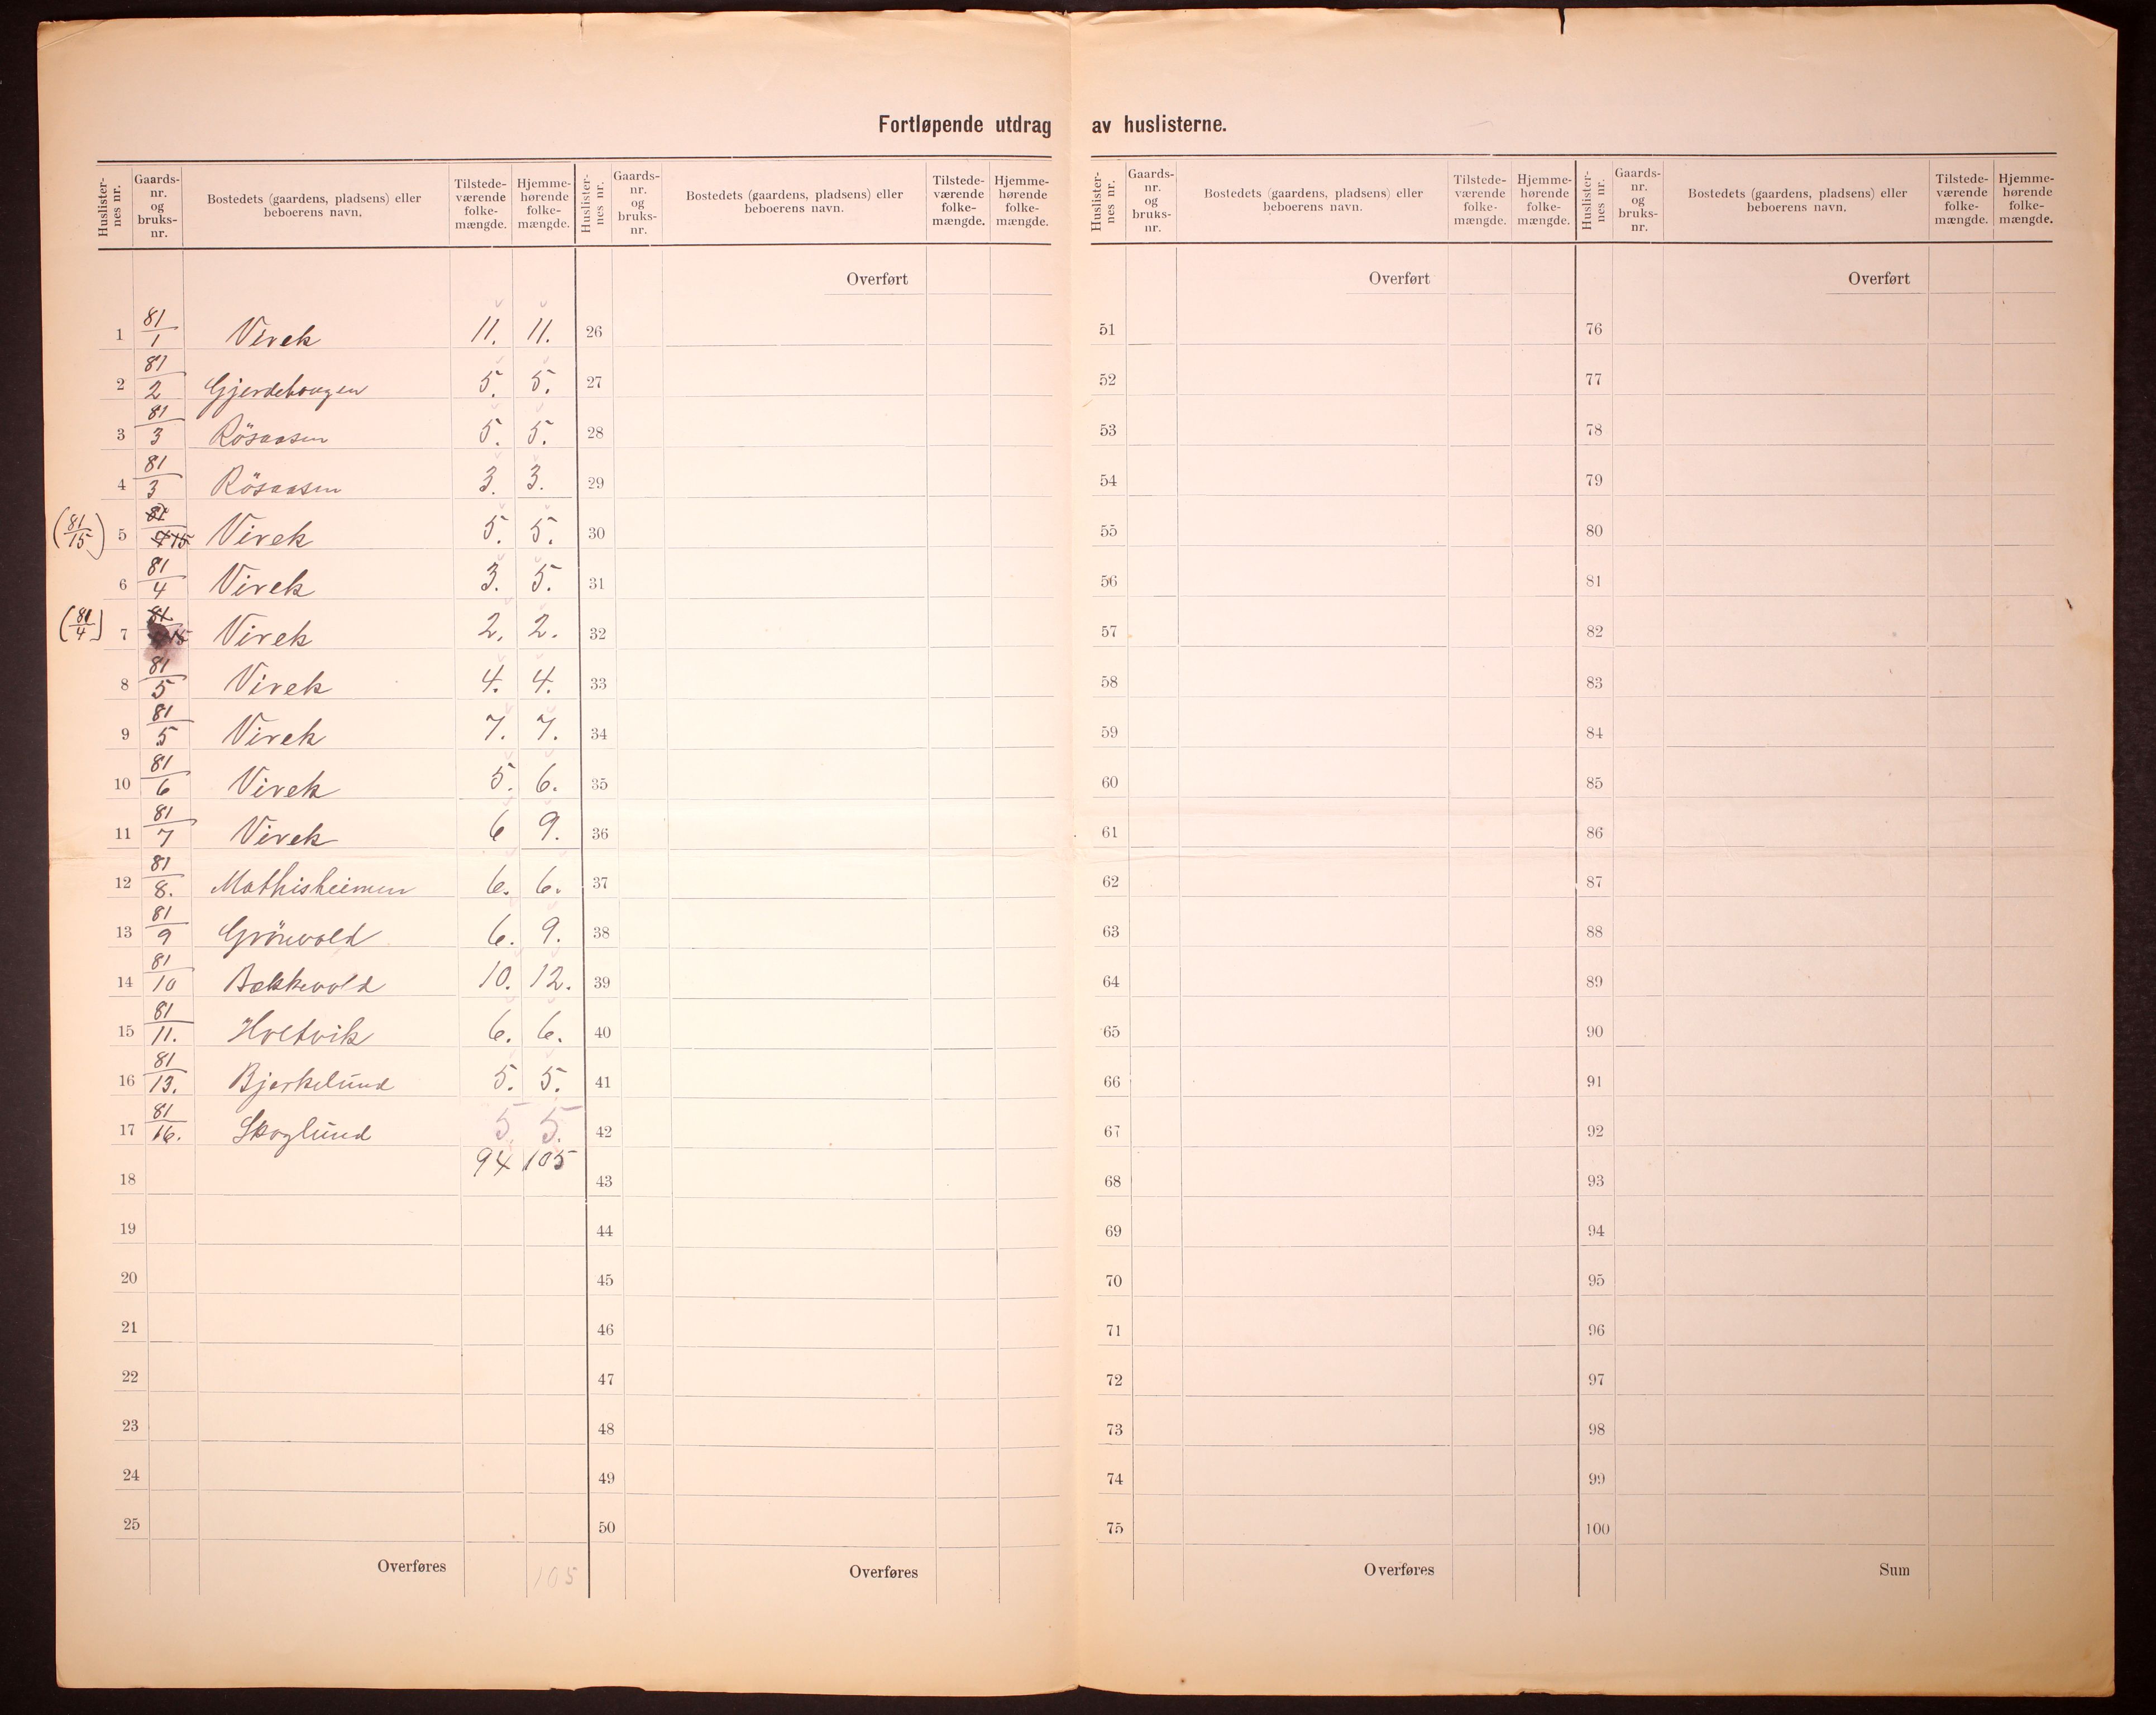 Fortløpende utdrag av huslisterne.
Huslister-nes nr. Gaards-nr. og bruks-nr. Bostedets (gaardens, pladsens) eller beboerens navn. Tilstede-værende folke-mængde. Hjemme-hørende folke-mængde. Huslister-nes nr. Gaards-nr. og bruks-nr. Bostedets (gaardens, pladsens) eller beboerens navn. Tilstede-værende folke-mængde. Hjemme-hørende folke-mængde. Huslister-nes nr. Gaards-nr. og bruks-nr. Bostedets (gaardens, pladsens) eller beboerens navn. Tilstede-værende folke-mængde. Hjemme-hørende folke-mængde. Huslister-nes nr. Gaards-nr. og bruks-nr. Bostedets (gaardens, pladsens) eller beboerens navn. Tilstede-værende folke-mængde. Hjemme-hørende folke-mængde.
Overført Overført Overført
1 81/1 Virek 11. 11. 26 51 76
2 81/2 Gjerdehaugen 5. 5. 27 52 77
3 81/3 Rösaasen 5. 5. 28 53 78
4 81/3 Rösaasen 3. 3. 29 54 79
(81/15) 5 81/15 Virek 5. 5. 30 55 80
6 81/4 Virek 3. 5. 31 56 81
(81/4) 7 81/15 Virek 2. 2. 32 57 82
8 81/5 Virek 4. 4. 33 58 83
9 81/5 Virek 7. 7. 34 59 84
10 81/6 Virek 5. 6. 35 60 85
11 81/7 Virek 6 9. 36 61 86
12 81/8. Mathisheimen 6. 6. 37 62 87
13 81/9 Grönvold 6. 9. 38 63 88
14 81/10 Bakkevold 10. 12. 39 64 89
15 81/11. Holtvik 6. 6. 40 65 90
16 81/13. Bjerkelund 5. 5. 41 66 91
17 81/16. Skoglund 5. 5. 42 67 92
94 105
18 43 68 93
19 44 69 94
20 45 70 95
21 46 71 96
22 47 72 97
23 48 73 98
24 49 74 99
25 50 75 100
Overføres 105 Overføres Overføres Sum